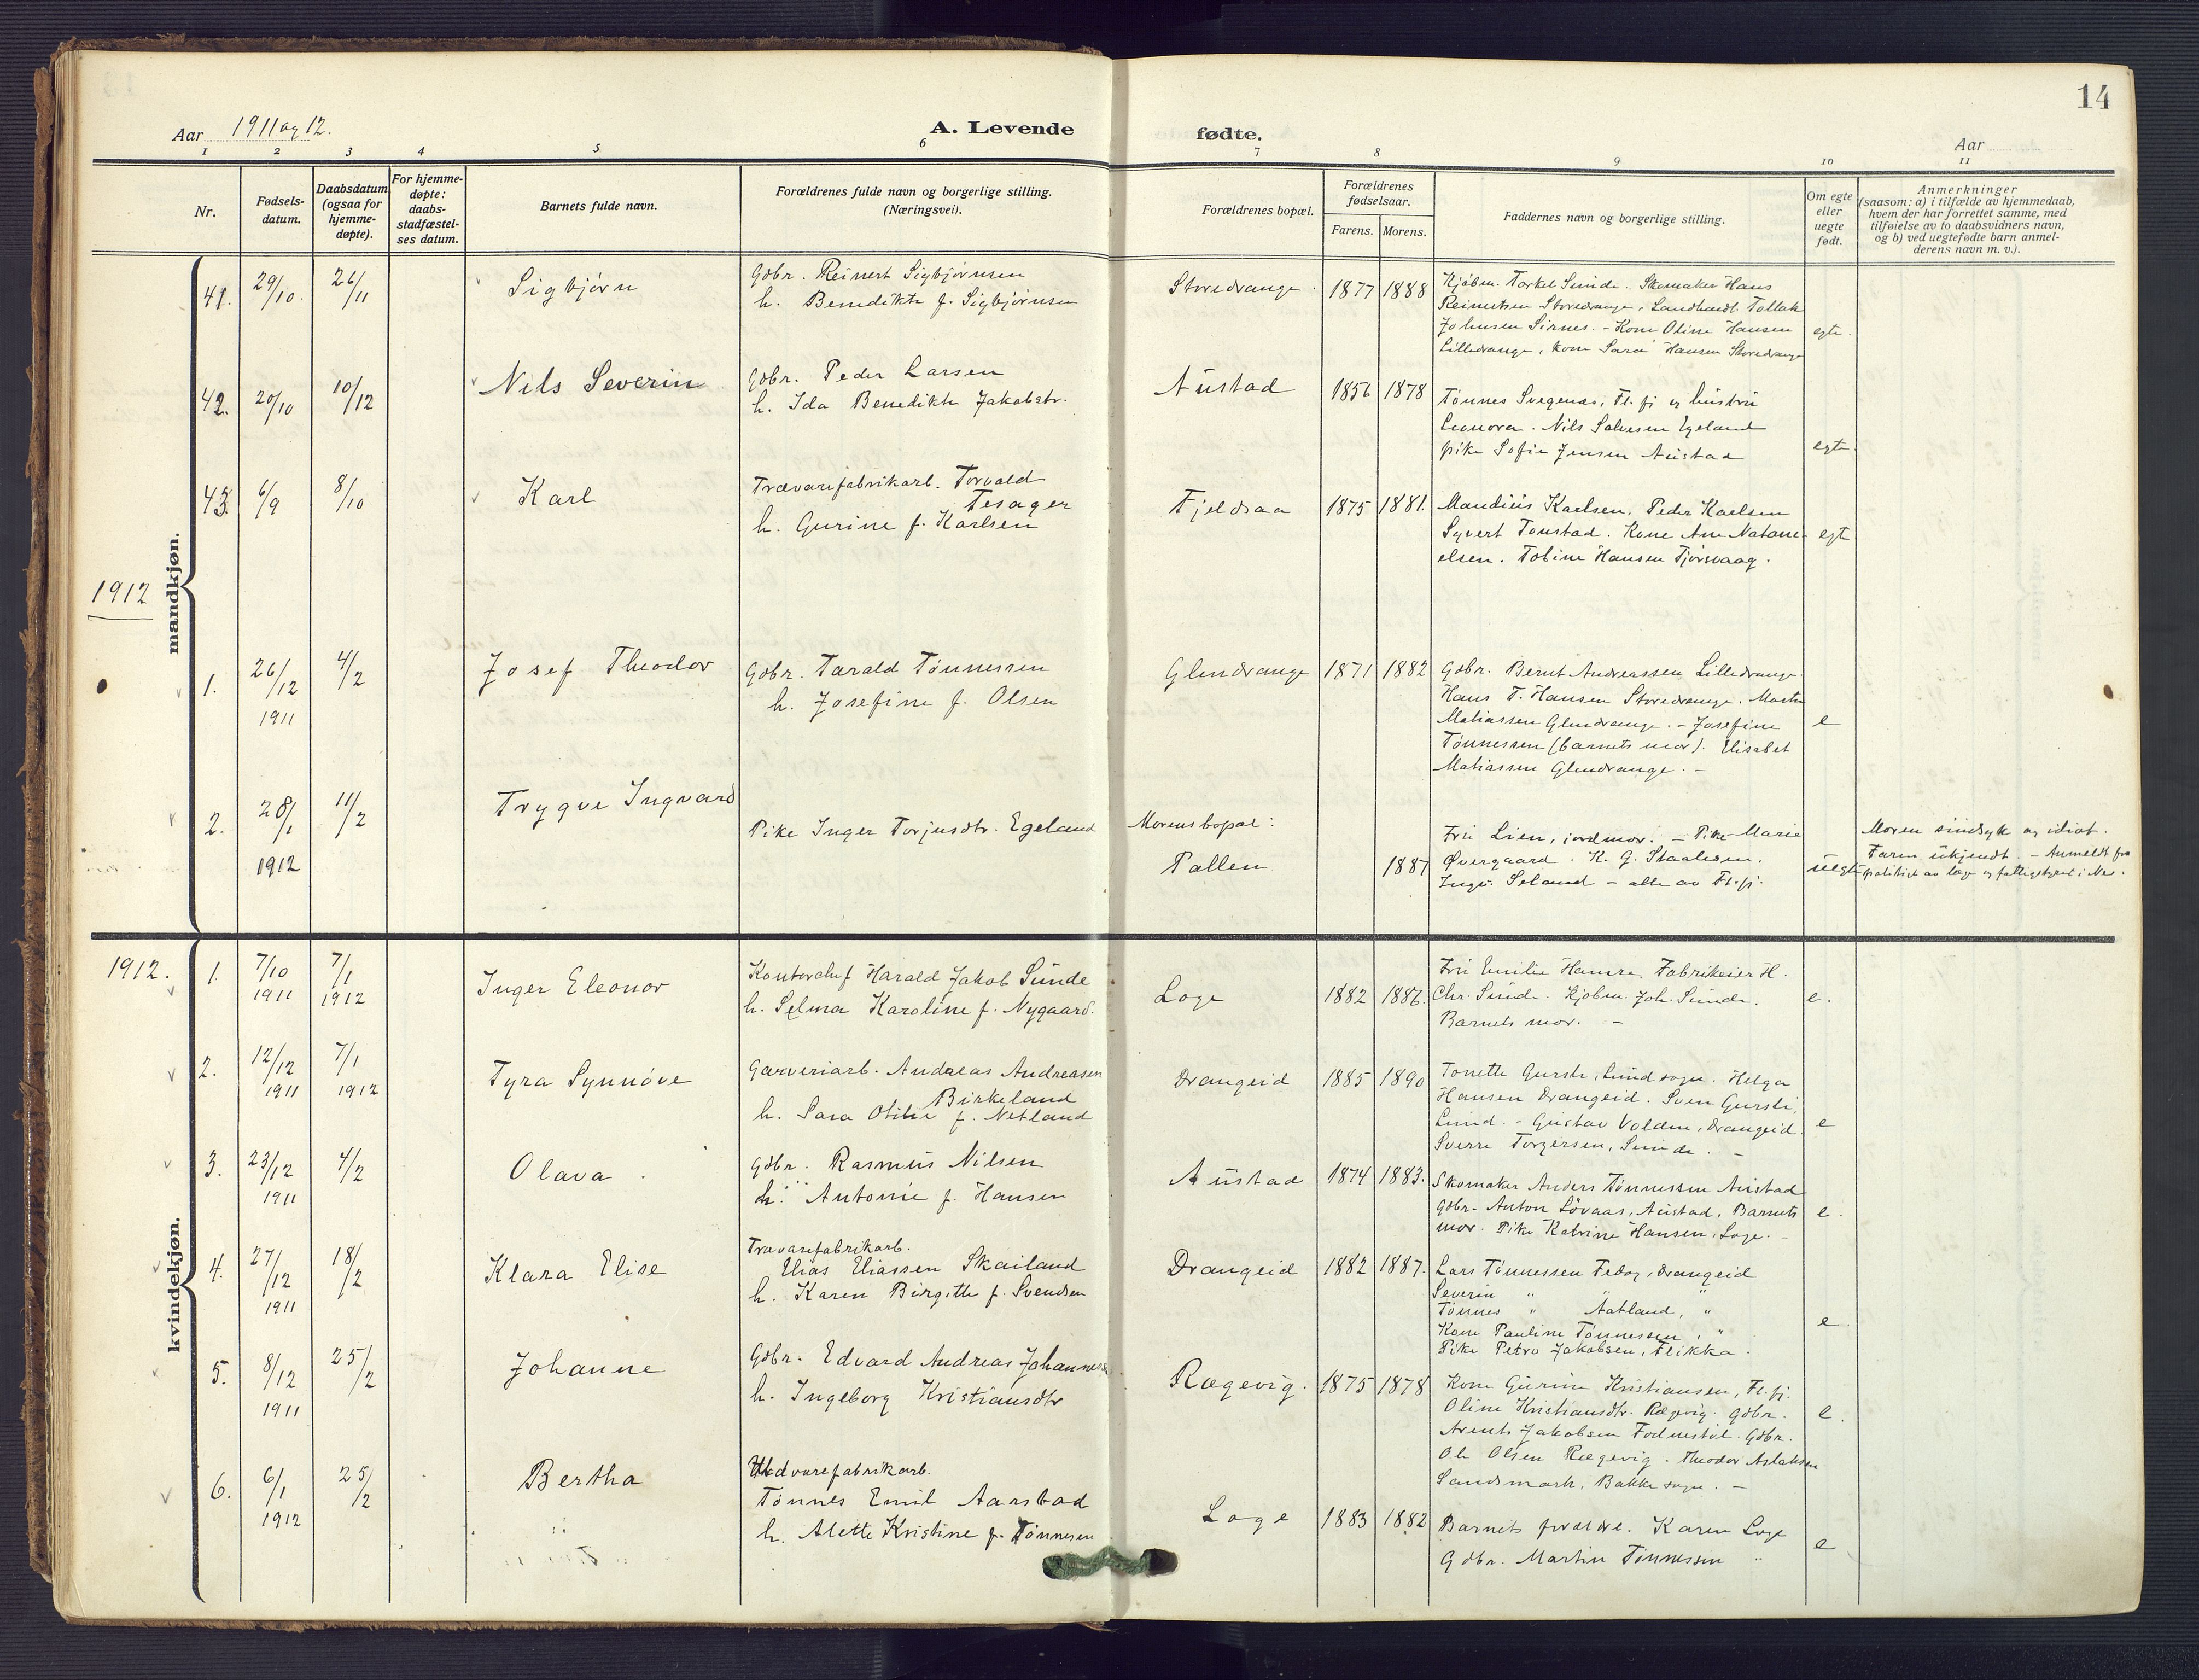 14
Aar 1911 og 12.
A. Levende fødte.
Aar
1 2 3 4 5 6 7 8 9 10 11
Nr.
Fødsels-
datum.
Daabsdatum
(ogsaa for
hjemme-
døpte).
For hjemme-
døpte:
daabs-
stadfæstel-
ses datum.
Barnets fulde navn.
Forældrenes fulde navn og borgerlige stilling.
(Næringsvei).
Forældrenes bopæl.
Forældrenes
fødselsaar.
Farens. Morens.
Faddernes navn og borgerlige stilling.
Om egte
eller
uegte
født.
Anmerkninger
(saasom: a) i tilfælde av hjemmedaab,
hvem der har forrettet samme, med
tilføielse av to daabsvidners navn,
og b) ved uegtefødte barn anmel-
derens navn m. v.).
mandkjøn.
41. 29/10. 26/11 Sigbjørn
Gdbr. Reinert Sigbjørnsen
h. Benedikte f. Sigbjørnsen
Storedrange. 1877 1888
Kjøbm. Torkel Sunde. Skomaker Hans
Reinertsen Storedrange, Landhandl. Tollak
Johnsen Sirnes. - Kone Oline Hansen
Lilledrange, kone Sara Hansen Storedrange
egte.
42. 20/10 10/12 Nils Severin
Gdbr. Peder Larsen
h. Ida Benedikte Jakobstr.
Austad 1856 1878
Tønnes Svegenæs, Fl. fj og hustru
Leonora. Nils Salvesen Egeland
pike Sofie Jensen Austad
egte.
43. 6/9 8/10 Karl
Trævarefabrikarb. Torvald
Tesager
h. Gurine f. Karlsen
Fjeldsaa 1875 1881.
Mandius Karlsen. Peder Karlsen
Syvert Tonstad. Kone Ane Natani-
elsen. Tobine Hansen Tjørsvaag.
egt
1912
1. 26/12 4/2 Josef Theodor
1911
Gdbr. Tarald Tønnessen
h. Josefine f. Olsen
Glendrange 1871 1882
Gdbr. Bernt Andreassen Lilledrange.
Hans T. Hansen Storedrange. Martin
Matiassen Glendrange. - Josefine
Tønnessen (barnets mor). Elisabet
Matiassen Glendrange. -
e
2. 28/1 11/2 Trygve Ingvard
1912
Pike Inger Torjusdtr. Egeland
Morens bopæl:
Pallen 1887
Fru Lien, jordmor. - Pike Marie
Øvergaard. K. G. Staalesen.
Ingv. Seland - alle av Fl. fj.
uegte
Moren sindsyk og idiot.
Faren ukjendt. - Anmeldt for
politiet av læge og fattigstyret i Nes.
kvindekjøn.
1912.
1. 7/10 7/1 Inger Eleonor
1911 1912
Kontorchef Harald Jakob Sunde
h. Selma Karoline f. Nygaard.
Loge 1882 1886.
Fru Emilie Hamre, Fabrikeier H.
Chr. Sunde. Kjøbm. Joh. Sunde.
Barnets mor. -
e.
2. 12/12 7/1 Tyra Synnøve
1911 1912
Garveriarb. Andreas Andreasen
Birkeland
h. Sara Otilie f. Netland
Drangeid 1885 1890
Tonette Gursli, Lund sogn. Helga
Hansen Drangeid. Sven Gursli,
Lund. - Gustav Volden, Drangeid.
Sverre Torgersen, Sunde. -
e
3. 23/12 4/2 Olava
1911
Gdbr. Rasmus Nilsen
h. Antonie f. Hansen
Austad 1874 1883.
Skomaker Anders Tønnessen Austad
Gdbr. Anton Løvaas, Austad. Barnets
mor. Pike Katrine Hansen, Loge. -
e.
4. 27/12 18/2 Klara Elise
1911
Trævarefabrikarb.
Elias Eliassen Skailand
h. Karen Birgitte f. Svendsen
Drangeid 1882 1887.
Lars Tønnessen Fedog, Drangeid
Severin " " "
Tønnes " Aatland, "
Kone Pauline Tønnessen, "
Pike Petra Jakobsen, Flikka.
e
5. 8/12 25/2 Johanne
1911
Gdbr. Edvard Andreas Johannes
h. Ingeborg Kristiansdtr
Rægevig. 1875 1878
Kone Gurine Kristiansen, Fl. fj.
Oline Kristiansdtr. Rægevig. Gdbr.
Arents Jakobsen Fodnestøl. Gdbr.
Ole Olsen Rægevig. Theodor Aslaksen
Sandsmark, Bakke sogn. -
e.
6. 6/1 25/2 Bertha
1912
Uldvarefabrikarb.
Tønnes Emil Aarstad
h. Alette Kristine f. Tønnesen
Loge 1883 1882
Barnets forældre. Karen Loge
Gdbr. Martin Tønnessen "
e